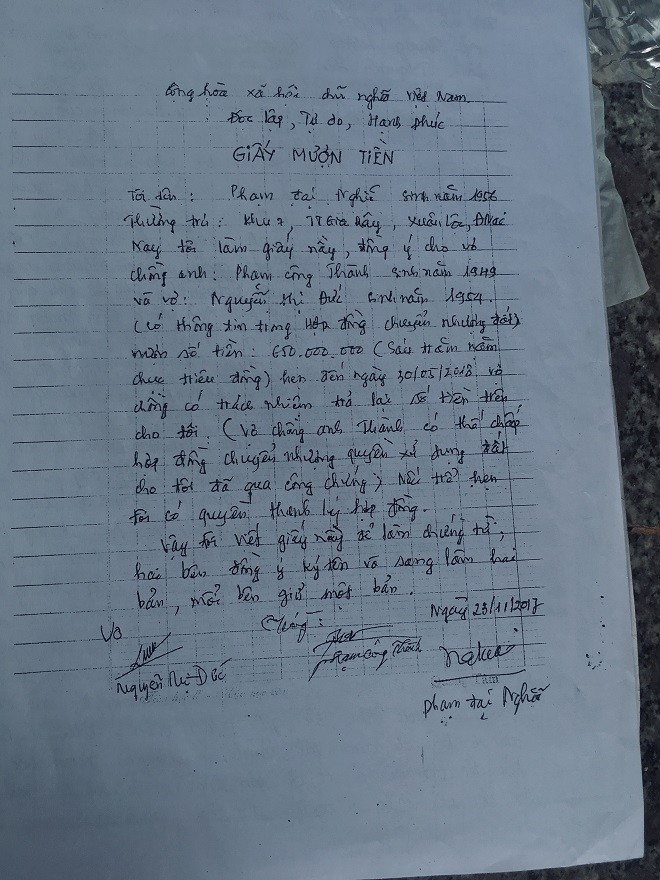 Cộng hòa xã hội chủ nghĩa Việt Nam.
Độc lập, Tự do, Hạnh phúc
GIẤY MƯỢN TIỀN
Tôi tên: Phạm đại Nghĩa sinh năm 1956
Thường trú: Khu 7, TT Gia Rây, Xuân Lộc, ĐNai
Nay tôi làm giấy này, đồng ý cho vợ
chồng anh: Phạm Công Thành sinh năm 1949
và vợ: Nguyễn Thị Đức sinh năm 1954.
(có thông tin trong Hợp đồng chuyển nhượng đất)
mượn số tiền: 650.000.000 (Sáu trăm năm
chục triệu đồng) hẹn đến ngày 30/05/2018 vợ
chồng có trách nhiệm trả lại số tiền trên
cho tôi. (Vợ chồng anh Thành có thế chấp
hợp đồng chuyển nhượng quyền xử dụng đất
cho tôi đã qua công chứng) Nếu trể hẹn
tôi có quyền thanh lý hợp đồng.
Vậy tôi viết giấy này để làm chứng từ,
hai bên đồng ý ký tên và sang làm hai
bản, mỗi bên giữ một bản.
Ngày 23/11/2017
Vợ Chồng:
Nguyễn Thị Đức Phạm Công Thành
Phạm đại Nghĩa